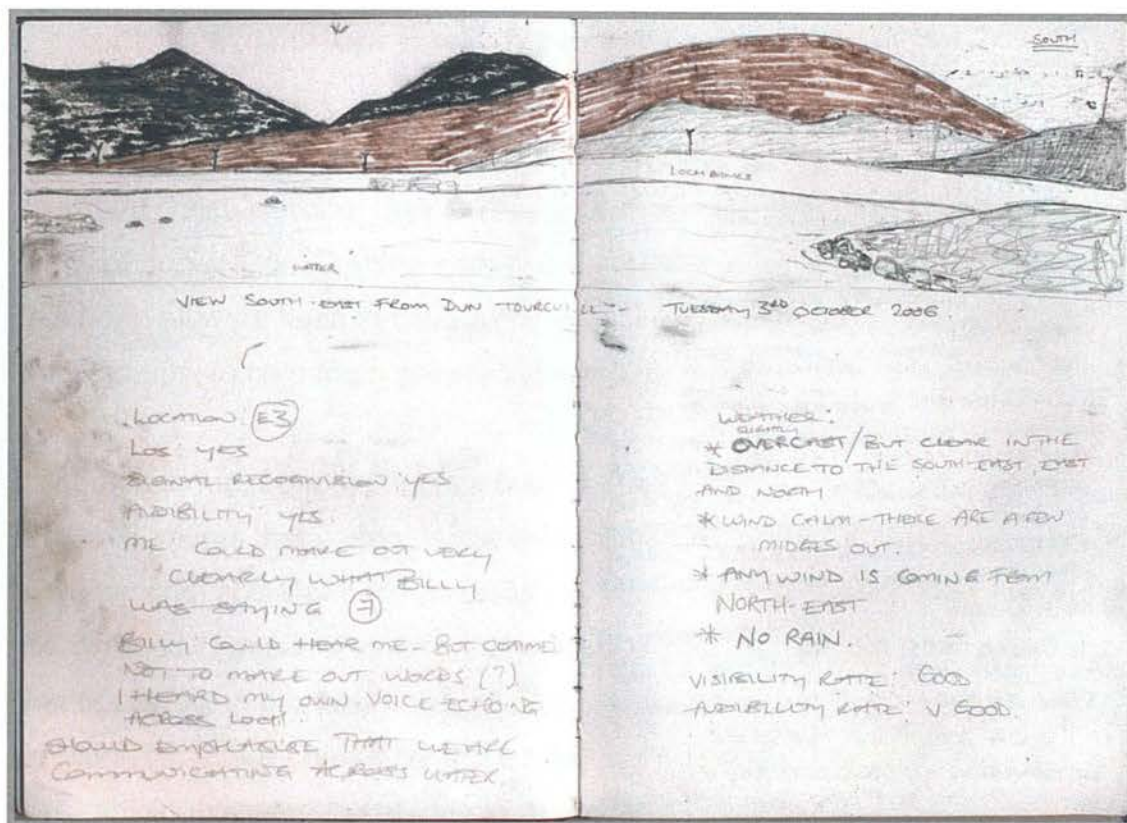 SOUTH
WATER
VIEW SOUTH-EAST FROM DUN TOURCUILL - TUESDAY 3RD OCTOBER 2006.
LOCATION: E3
LOS: YES
SIGNAL RECOGNISION YES
AUDIBILITY YES.
ME: COULD MAKE OUT VERY
CLEARLY WHAT BILLY
WAS SAYING 7
BILLY: COULD HEAR ME - BUT CLAIMED
NOT TO MAKE OUT WORDS (?)
I HEARD MY OWN VOICE ECHOING
ACROSS LOCH.
SHOULD EMPHASISE THAT WE ARE
COMMUNICATING ACROSS WATER
LOCH
WEATHER:
SLIGHTLY
* OVERCAST/BUT CLEAR IN THE
DISTANCE TO THE SOUTH-EAST, EAST
AND NORTH
* WIND CALM - THERE ARE A FEW
MIDGES OUT.
* ANY WIND IS COMING FROM
NORTH-EAST
* NO RAIN.
VISIBILITY RATE: GOOD
AUDIBILITY RATE: V GOOD.